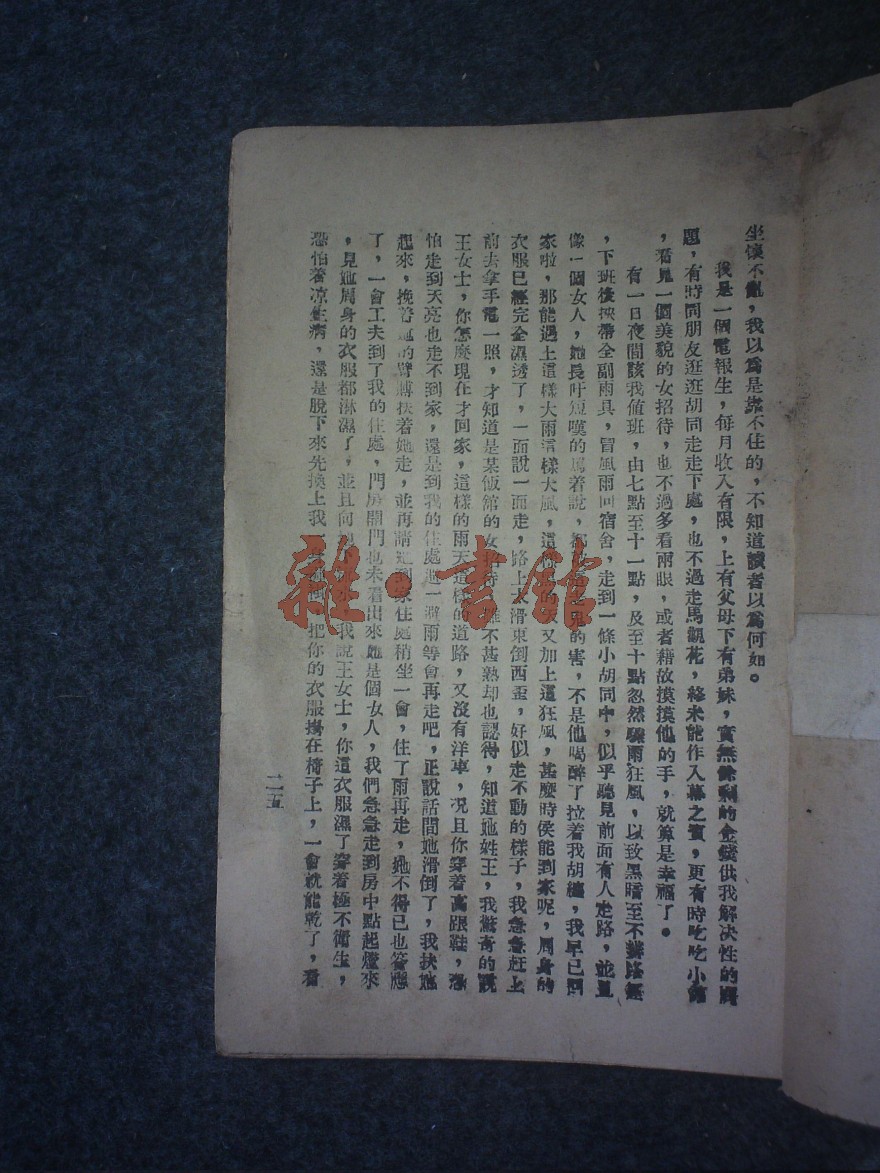 坐懷不亂，我以爲是靠不住的，不知道讀者以爲何如。
我是一個電報生，每月收入有限，上有父母下有弟妹，實無餘剩的金錢供我解决性的問
題，有時同朋友逛逛胡同走走下處，也不過走馬觀花，終未能作入幕之賓，更有時吃吃小館
，看見一個美貌的女招待，也不過多看兩眼，或者藉故摸摸他的手，就算是幸福了。
有一日夜間該我値班，由七點至十一點，及至十點忽然驟雨狂風，以致黑暗至不辨路徑
，下班後挾帶全副雨具，冒風雨回宿舍，走到一條小胡同中，似乎聽見前面有人走路，並且
像一個女人，她長吁短嘆的罵着說，都的害，不是他喝醉了拉着我胡纏，我早已回
家啦，那能遇上這樣大雨這樣大風，這又加上這狂風，甚麽時侯能到家呢，周身的
衣服已經完全濕透了，一面說一面走，路上太滑東倒西歪，好似走不動的樣子，我急急赶上
前去拿手電一照，才知道是某飯館的女不甚熟却也認得，知道她姓王，我驚奇的說
王女士，你怎麽現在才回家，這樣的雨天這樣的道路，又沒有洋車，况且你穿着高跟鞋，恐
怕走到天亮也走不到家，還是到我的住處避一避雨等會再走吧，正說話間她滑倒了，我扶她
起來，挽着她的臂膊扶着她走，並再請她到家住處稍坐一會，住了雨再走，她不得已也答應
了，一會工夫到了我的住處，門房開門也未看出來她是個女人，我們急急走到房中點起燈來
，見她周身的衣服都淋濕了，並且向我說王女士，你這衣服濕了穿着極不衛生，
恐怕着凉生病，還是脫下來先換上我把你的衣服搭在椅子上，一會就能乾了，看
二五
雜·書館